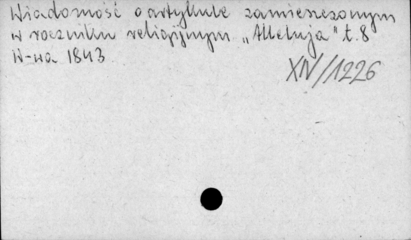 Wiadomość o artykule zamieszczonym
w roczniku religijnym "Alleluja" t. 8
W-wa 1843
XIV/1226